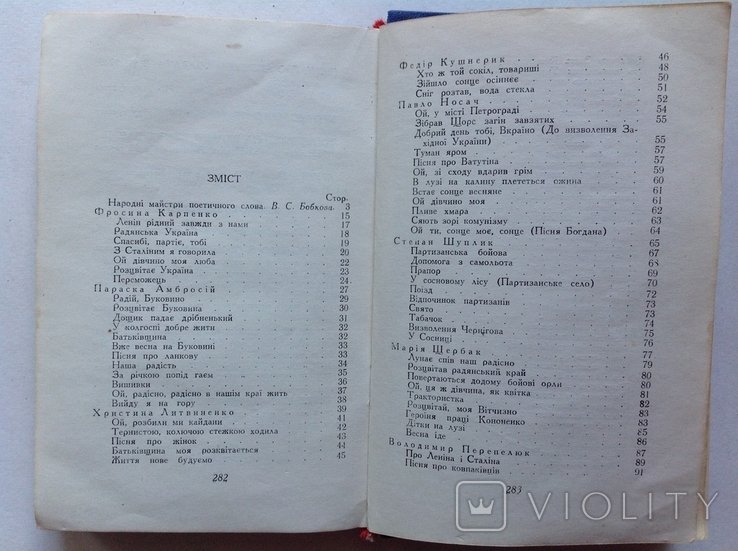 ЗМІСТ
Стор.
Народні майстри поетичного слова. В. С. Бобкова . 3
Фросина Карпенко 15
Ленін рідний завжди з нами 17
Радянська Україна 18
Спасибі, партіє, тобі 19
З Сталіним я говорила 20
Ой дівчино моя люба 22
Розцвітає Україна 23
Переможець 24
Параска Амбросій 27
Радій, Буковино 29
Розцвітає Буковина 30
Дощик падає дрібненький 31
У колгоспі добре жити 32
Батьківщина 32
Вже весна на Буковині 33
Пісня про ланкову 33
Наша радість 34
За річкою попід гаєм 35
Вишивки 36
Ой, радісно, радісно в нашім краї жить 37
Вийду я на гору 38
Христина Литвиненко 39
Ой, розбили ми кайдани 41
Тернистою, колючою стежкою ходила 42
Пісня про жінок 43
Батьківщина моя розквітається 44
Життя нове будуємо 45
282
Федір Кушнерик 46
Хто ж той сокіл, товариші 48
Зійшло сонце осіннєє 50
Сніг розтав, вода стекла 51
Павло Носач 52
Ой, у місті Петрограді 54
Зібрав Щорс загін завзятих 55
Добрий день тобі, Вкраїно (До визволення За-
хідної України) 55
Туман яром 57
Пісня про Ватутіна 57
Ой, зі сходу вдарив грім 59
В лузі на калину плететься ожина 60
Встає сонце весняне 61
Ой дівчино моя 61
Пливе хмара 62
Сяють зорі комунізму 63
Ой ти, сонце моє, сонце (Пісня Богдана) 64
Степан Шуплик 65
Партизанська бойова 67
Допомога з самольота 68
Прапор 69
У сосновому лісу (Партизанське село) 70
Поїзд 72
Відпочинок партизанів 72
Свято 73
Табачок 74
Визволення Чернігова 75
У Сосниці 76
Марія Щербак 77
Лунає спів наш радісно 79
Розцвітав радянський край 80
Повертаються додому бойові орли 80
Ой, ця ж дівчина, як квітка 81
Трактористка 82
Розцвітай, моя Вітчизно 83
Героїня праці Кононенко 83
Дітки на лузі 85
Весна іде 86
Володимир Перепелюк 87
Про Леніна і Сталіна 89
Пісня про ковпаківців 91
283
VIOLITY